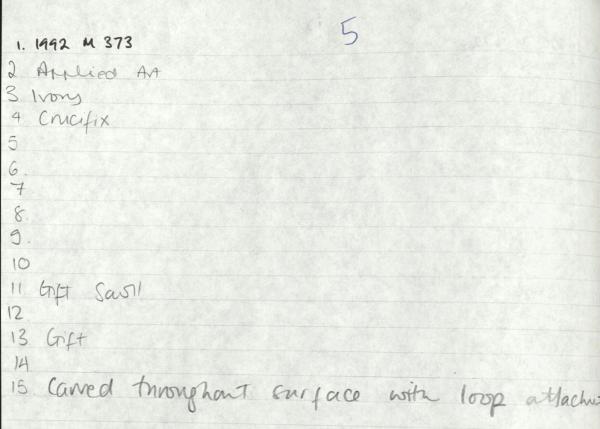 5
1. 1992 M 373
2 Applied Art
3 Ivory
4 Crucifix
5
6.
7
8.
9.
10
11 Gift
12
13 Gift
14
15 Carved throughout surface with loop